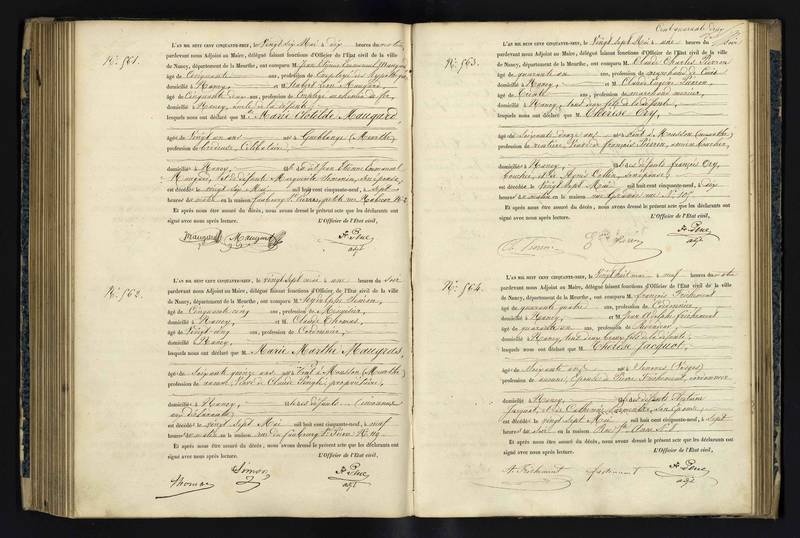 N.º 561.
L'AN MIL HUIT CENT CINQUANTE-NEUF, le Vingt six Mai à dix heures du matin
pardevant nous Adjoint au Maire, délégué faisant fonctions d'Officier de l'Etat civil de la ville
de Nancy, département de la Meurthe, ont comparu M. Jean Etienne Emmanuel Maugard
âgé de Cinquante ans, profession de Employé des hypothèques
domicilié à Nancy et M. Léon Maugard
âgé de Cinquante deux ans, profession de Employé au chemin de fer,
domicilié à Nancy, oncle de la défunte
lesquels nous ont déclaré que M. Marie Clotilde Maugard
âgée de Vingt un ans née à Gerbéviller (Meurthe)
profession de brodeuse, Célibataire,
domiciliée à Nancy Jean Etienne Emmanuel
Maugard, et de défunte Marguerite Simonin, son épouse,
est décédée le vingt six Mai mil huit cent cinquante-neuf, à sept
heures du matin en la maison faubourg St Pierre,
Et après nous être assuré du décès, nous avons dressé le présent acte que les déclarants ont
signé avec nous après lecture. L'Officier de l'Etat civil,
Maugard Maugard
adjt
N.º 562.
L'AN MIL HUIT CENT CINQUANTE-NEUF, le vingt sept mai à une heures du soir
pardevant nous Adjoint au Maire, délégué faisant fonctions d'Officier de l'Etat civil de la ville
de Nancy, département de la Meurthe, ont comparu M. Hyacinthe Simon,
âgé de Cinquante cinq ans, profession de
domicilié à Nancy, et M. Claude Thomas,
âgé de Vingt cinq ans, profession de Cordonnier,
domicilié à Nancy,
lesquels nous ont déclaré que M. Marie Marthe Maugras,
âgée de soixante quinze ans née à Pont à Mousson (Meurthe)
profession de néant, Veuve de Claude propriétaire,
domiciliée à Nancy, des défunts (inconnus
aux déclarants)
est décédée le vingt sept Mai mil huit cent cinquante-neuf, à neuf
heures du matin en la maison rue du faubourg St Pierre
Et après nous être assuré du décès, nous avons dressé le présent acte que les déclarants ont
signé avec nous après lecture. L'Officier de l'Etat civil,
Thomas Simon
adjt
Cent quarante deux
N.º 563.
L'AN MIL HUIT CENT CINQUANTE-NEUF, le Vingt sept Mai à une heures du soir
pardevant nous Adjoint au Maire, délégué faisant fonctions d'Officier de l'Etat civil de la ville
de Nancy, département de la Meurthe, ont comparu M. Claude Charles Pierron
âgé de quarante un ans, profession de marchand de
domicilié à Nancy, et M. Claude Eugène Pierron,
âgé de Trente ans, profession de marchand mercier,
domicilié à Nancy, tous deux fils de la défunte,
lesquels nous ont déclaré que M. Thérèse Ory,
âgée de soixante douze ans née à Pont à Mousson (Meurthe)
profession de rentière, Veuve de François Pierron, ancien boucher,
domiciliée à Nancy, des défunts François Ory,
boucher, et de Agnès Collin, son épouse,
est décédée le vingt sept Mai mil huit cent cinquante-neuf, à dix
heures du matin en la maison
Et après nous être assuré du décès, nous avons dressé le présent acte que les déclarants ont
signé avec nous après lecture. L'Officier de l'Etat civil,
Pierron Pierron
adjt
N.º 564.
L'AN MIL HUIT CENT CINQUANTE-NEUF, le Vingt huit mai à neuf heures du matin
pardevant nous Adjoint au Maire, délégué faisant fonctions d'Officier de l'Etat civil de la ville
de Nancy, département de la Meurthe, ont comparu M. François Frichement
âgé de quarante quatre ans, profession de Cordonnier,
domicilié à Nancy, et M. Jean Adolphe Frichement
âgé de quarante un ans, profession de
domicilié à Nancy, tous deux beaux fils de la défunte,
lesquels nous ont déclaré que M. Thérèse Jacquot,
âgée de soixante onze ans née à Senones (Vosges)
profession de néant, Epouse de Pierre Frichement, cordonnier
domiciliée à Nancy, des défunts
Jacquot, et de Catherine son épouse,
est décédée le vingt sept Mai mil huit cent cinquante-neuf, à sept
heures du soir en la maison Rue
Et après nous être assuré du décès, nous avons dressé le présent acte que les déclarants ont
signé avec nous après lecture. L'Officier de l'Etat civil,
A. Frichement frichement
adjt